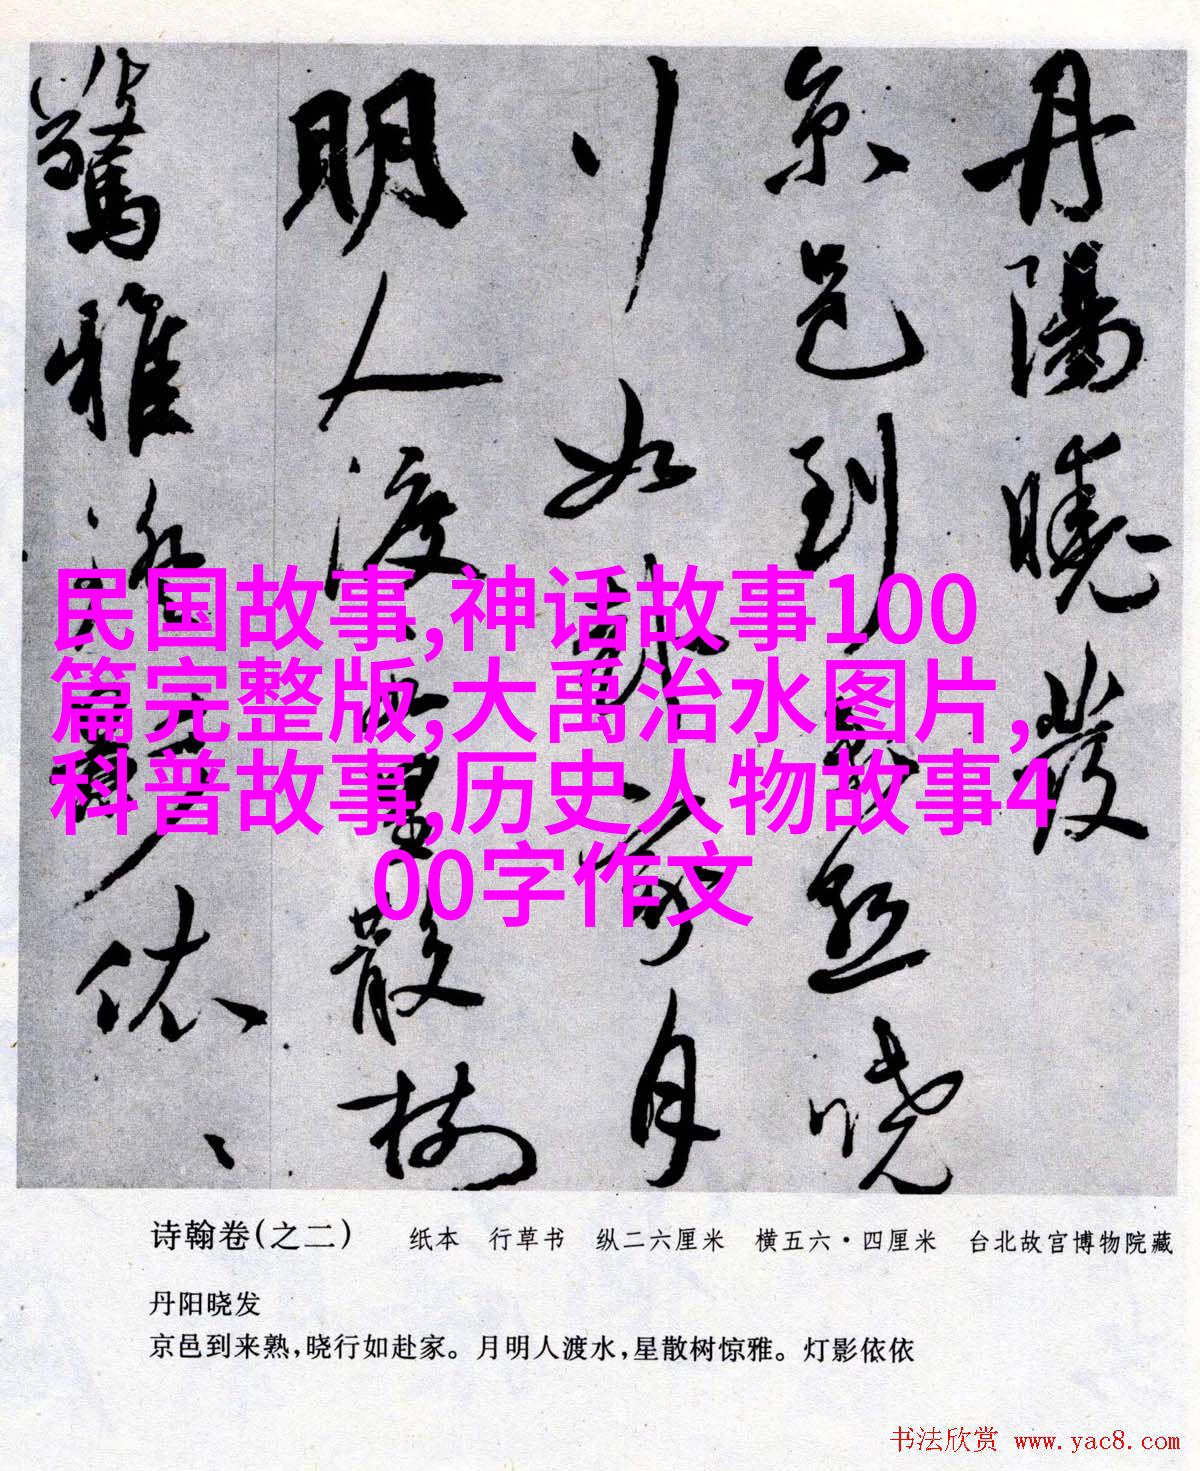 丹陽曉發
京邑到來熟曉
行如赴家月
明人渡水星散樹
驚雅燈影依〻
民国故事,神话故事100
篇完整版,大禹治水图片,
科普故事,历史人物故事4
00字作文
诗翰卷(之二) 纸本 行草书 纵二六厘米 横五六·四厘米 台北故宫博物院藏
丹阳晓发
京邑到来熟,晓行如赴家。月明人渡水,星散树惊雅。灯影依依
书法欣赏 www.yac8.com